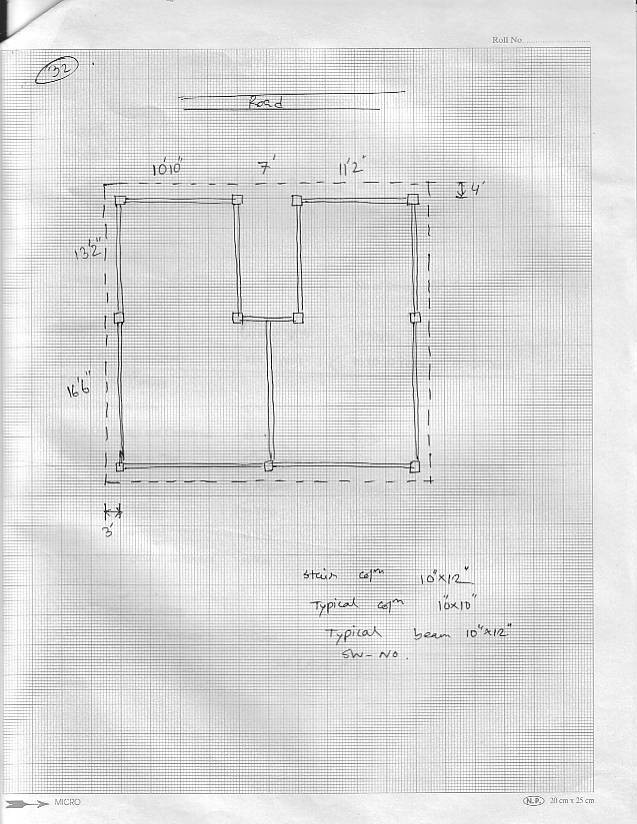 Roll No.
32
Road
10'10" 7' 11'2"
4'
13'2"
16'6"
3'
Stair colm 10"x12"
Typical colm 10"x10"
Typical beam 10"x12"
SW-No.
MICRO
N.P. 20 cm x 25 cm